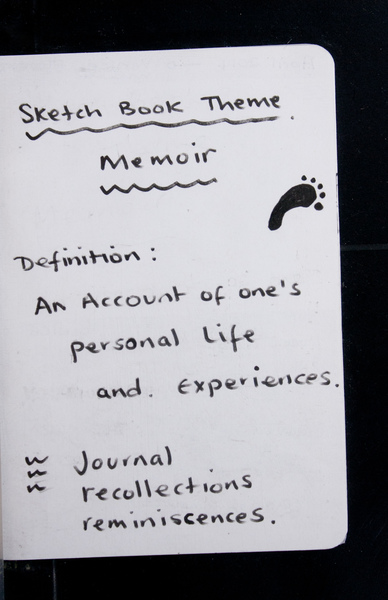 Sketch Book Theme.
Memoir
Definition :
An Account of one's
personal Life
and. Experiences.
Journal
recollections
reminiscences.